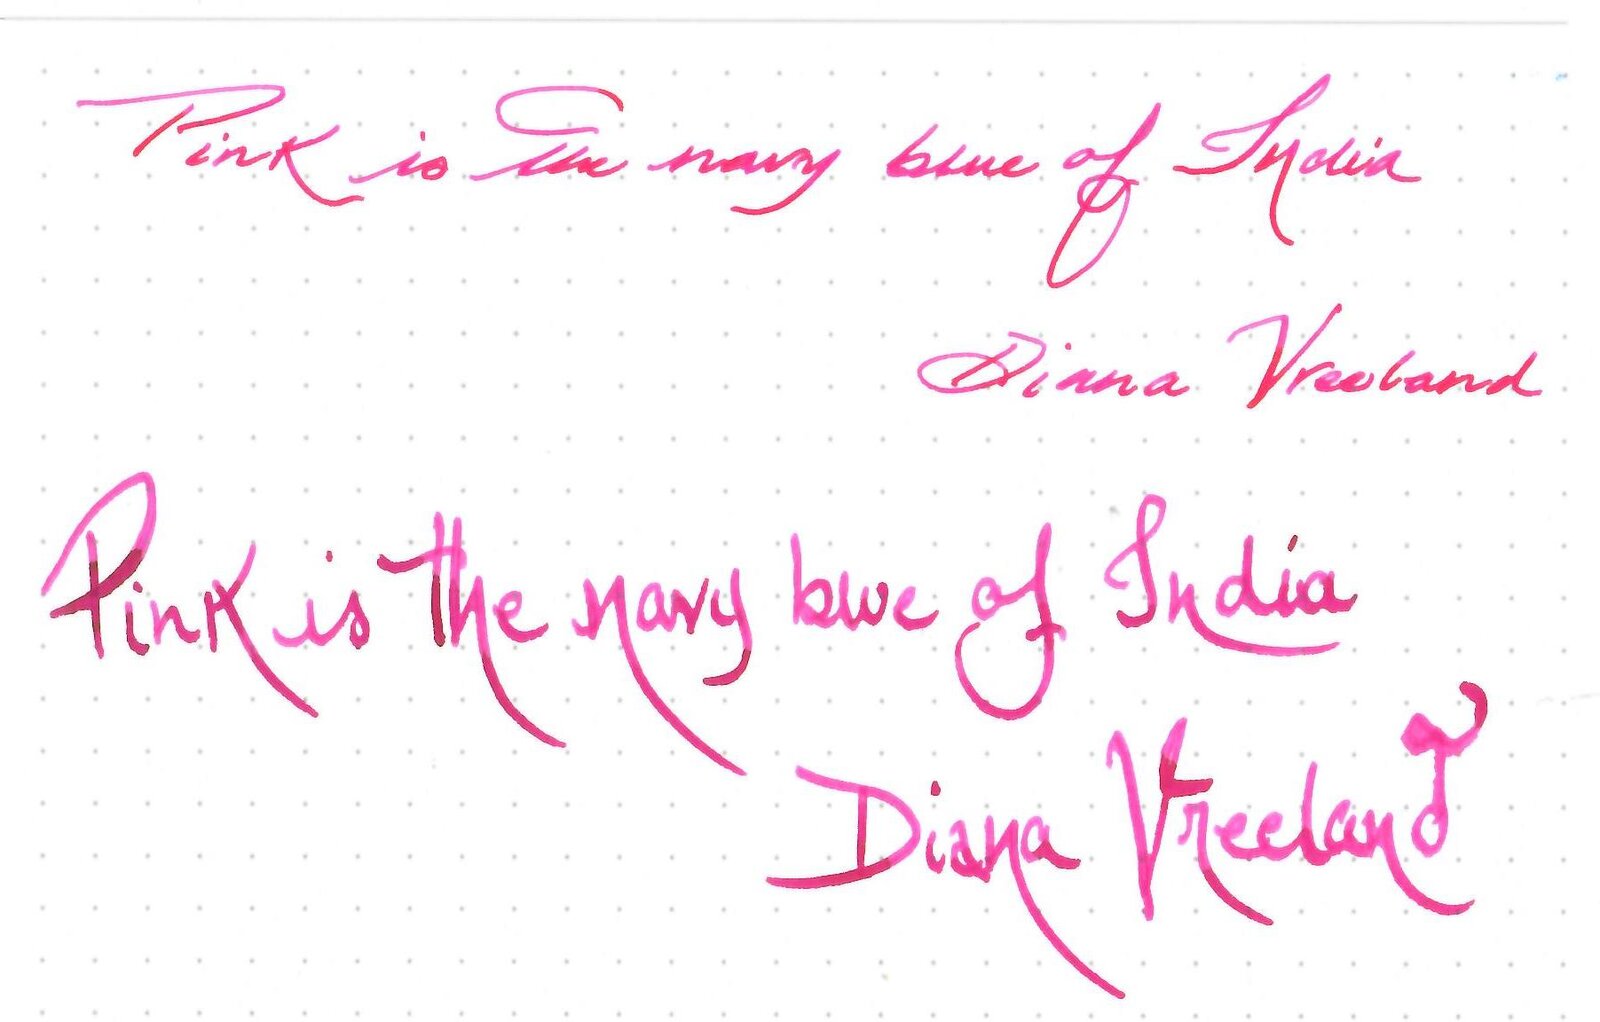 Pink is the navy blue of India
Diana Vreeland
Pink is the navy blue of India
Diana Vreeland